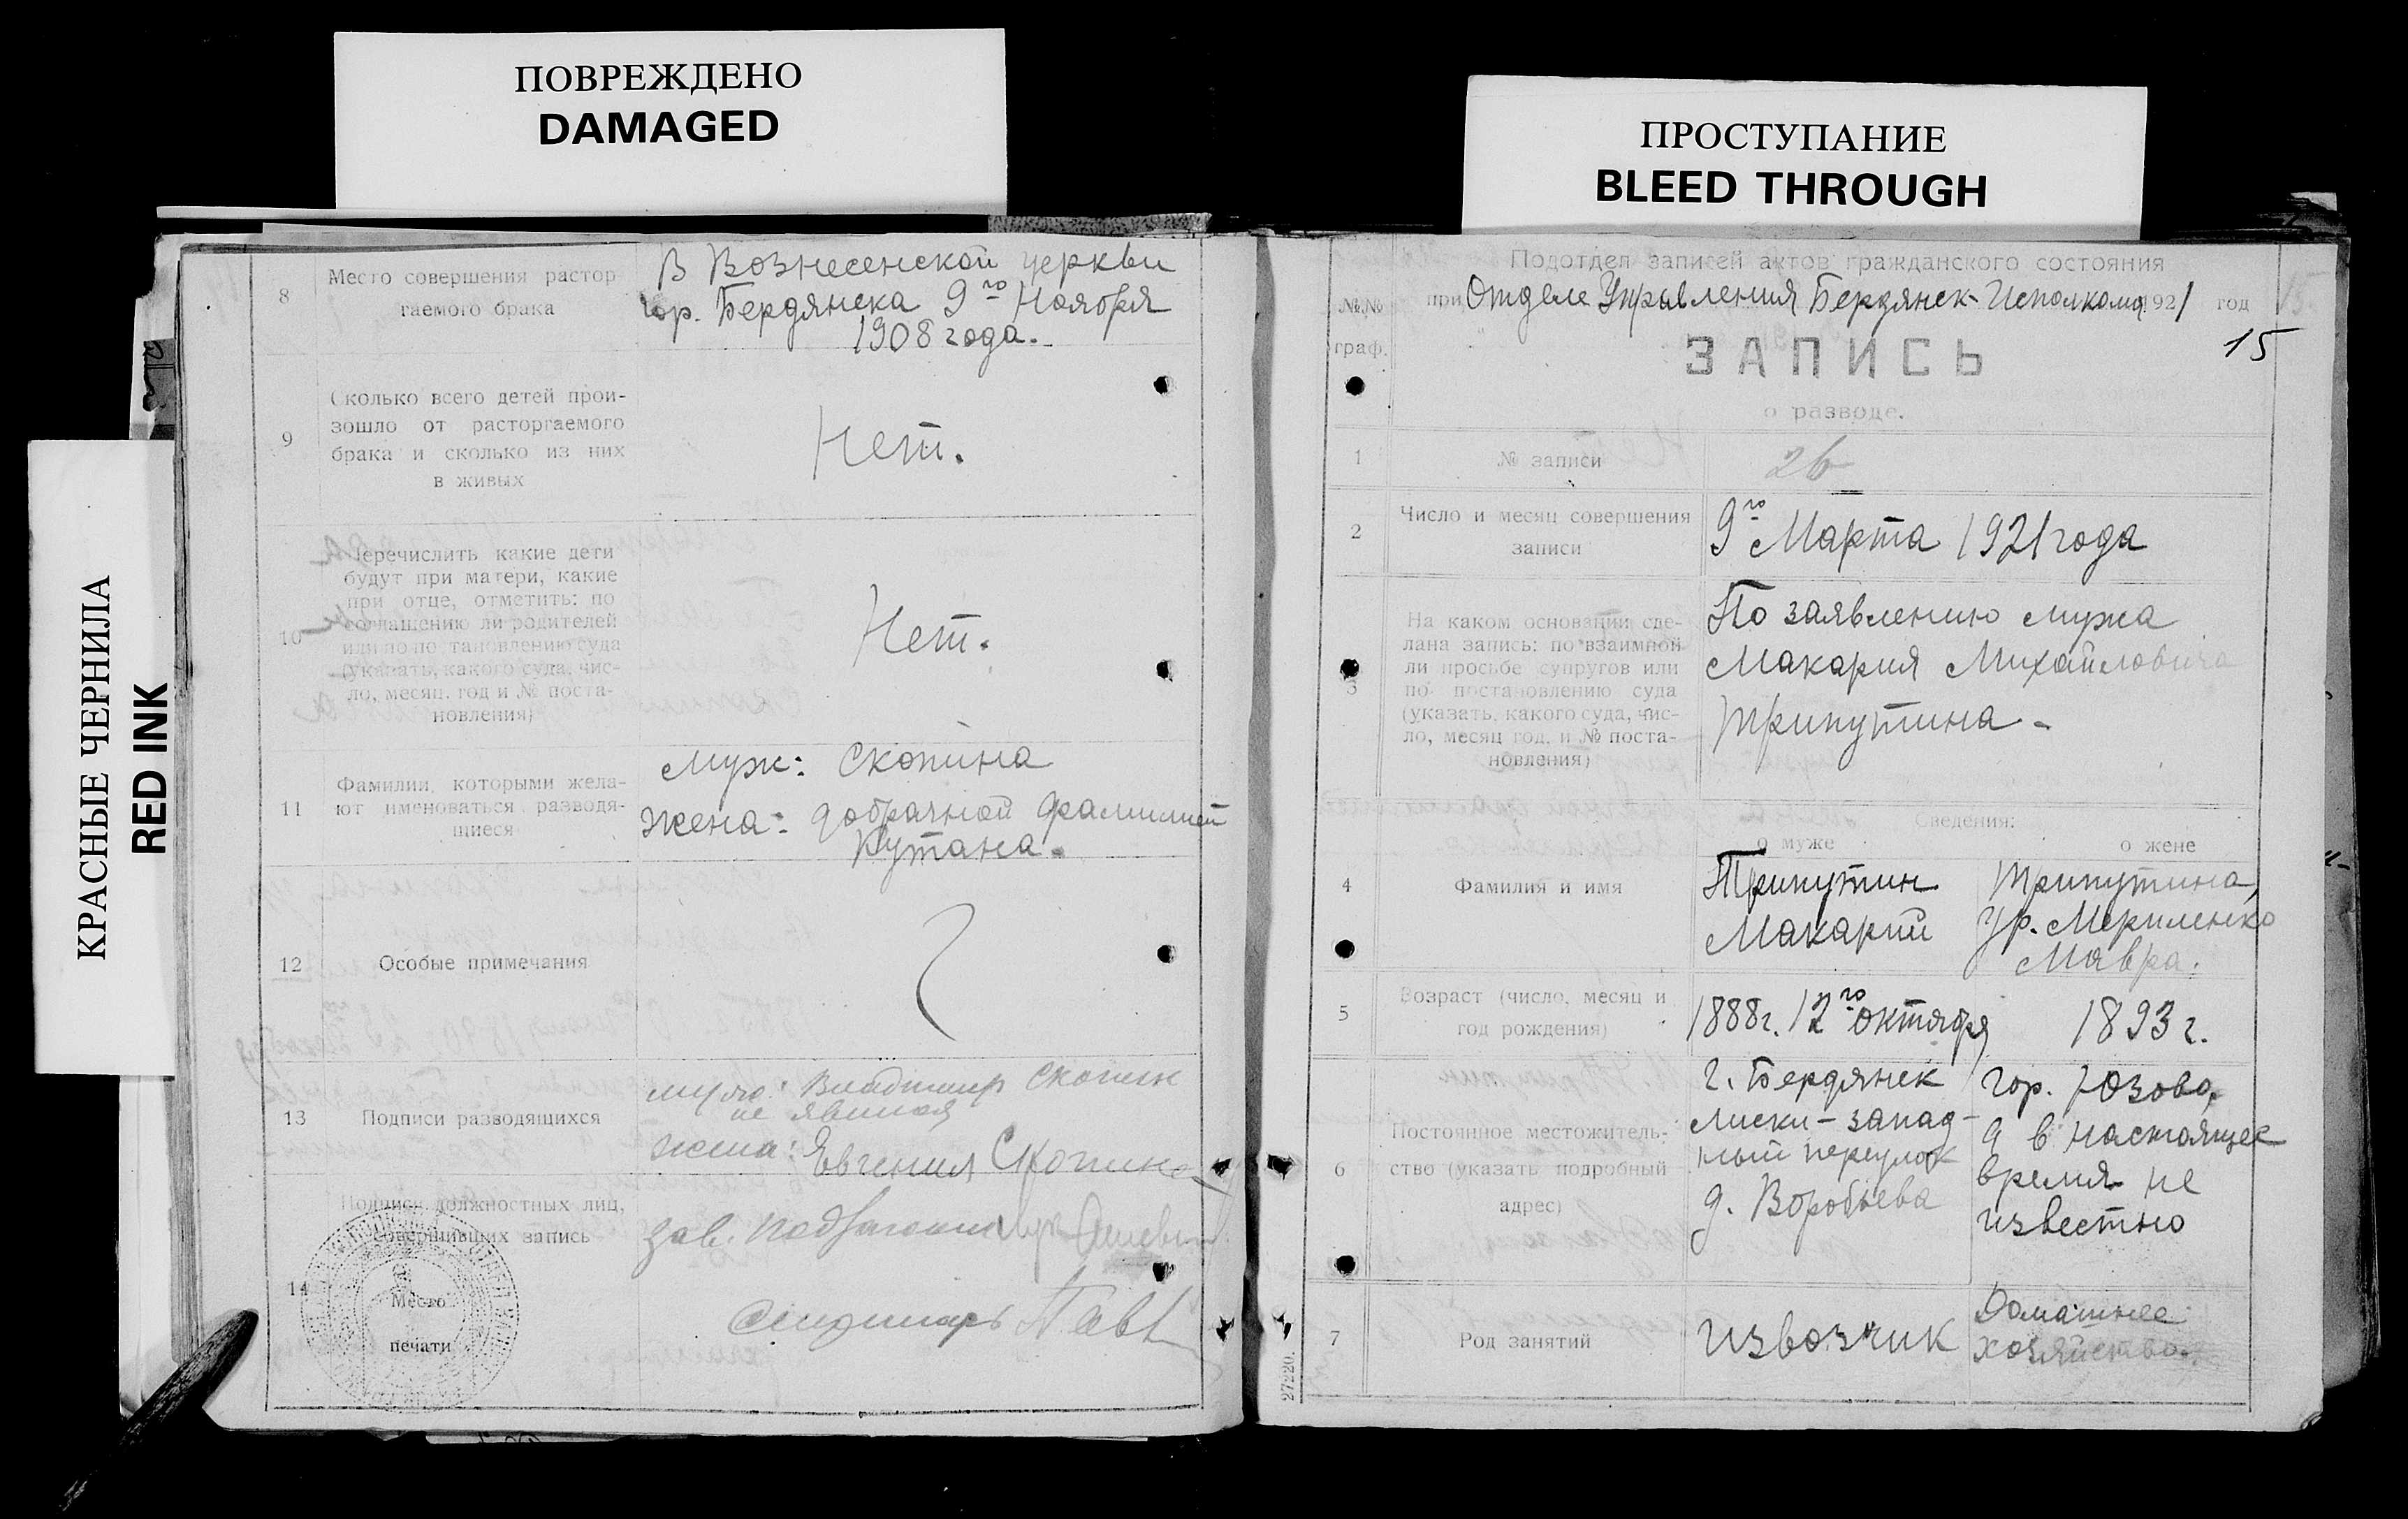 ПОВРЕЖДЕНО
DAMAGED
ПРОСТУПАНИЕ
BLEED THROUGH
КРАСНЫЕ ЧЕРНИЛА
RED INK
8
Место совершения растор
гаемого брака
В Вознесенской церкви
гор. Бердянска 9го Ноября
1908 года.
9
Сколько всего детей прои-
зошло от расторгаемого
брака и сколько из них
в живых
Нет.
10
Перечислить какие дети
будут при матери, какие
при отце, отметить: по
соглашению ли родителей
или по по тановлению суда
(указать, какого суда, чис-
ло, месяц. год и № поста-
новления)
Нет.
11
Фамилии, которыми жела-
ют именоваться разводя-
щиеся
Муж: Скопина
Жена: добрачной фамилией
Кутана.
12
Особые примечания
13
Подписи разводящихся
муж: Владимир Скопин
не явился
жена: Евгения Скопина
14
Подписи должностных лиц,
совершивших запись
Место
печати
зав.
Подотдел записей актов гражданского состояния
№№
граф.
при Отделе Управления Бердянск. Исполкома 1921 год
15
ЗАПИСЬ
о разводе.
1
№ записи
26
2
Число и месяц совершения
записи
9го Марта 1921 года
3
На каком основании сде-
лана запись: по взаимной
ли просьбе супругов или
по постановлению суда
(указать, какого суда, чис-
ло, месяц год, и № поста-
новления)
По заявлению мужа
Макария Михайловича
Трипутина
Сведения:
о муже
о жене
4
Фамилия и имя
Трипутин
Макарий
Трипутина,
ур. Мериленко
Мавра.
5
Возраст (число, месяц и
год рождения)
1888г. 12го октября
1893 г.
6
Постоянное местожитель-
ство (указать подробный
адрес)
г. Бердянск
Лиски-запад-
ный переулок
д. Воробьева
гор. Юзово,
а в настоящее
время не
известно
7
Род занятий
извозчик
Домашнее
хозяйство.
27220.